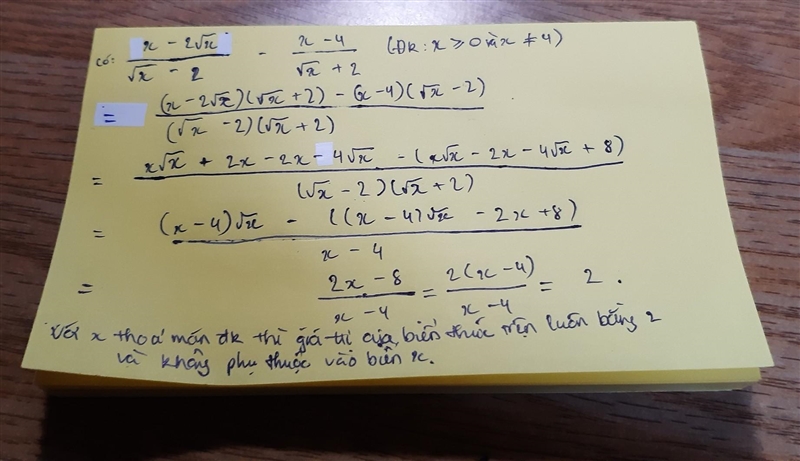 có: (x - 2√x)/(√x - 2) - (x - 4)/(√x + 2) (ĐK: x ≥ 0 và x ≠ 4)
= ((x - 2√x)(√x + 2) - (x - 4)(√x - 2))/((√x - 2)(√x + 2))
= (x√x + 2x - 2x - 4√x - (x√x - 2x - 4√x + 8))/((√x - 2)(√x + 2))
= ((x - 4)√x - ((x - 4)√x - 2x + 8))/(x - 4)
= (2x - 8)/(x - 4) = 2(x - 4)/(x - 4) = 2.
Với x thoả mãn đk thì giá trị của biến thức trên luôn bằng 2
và không phụ thuộc vào biến x.